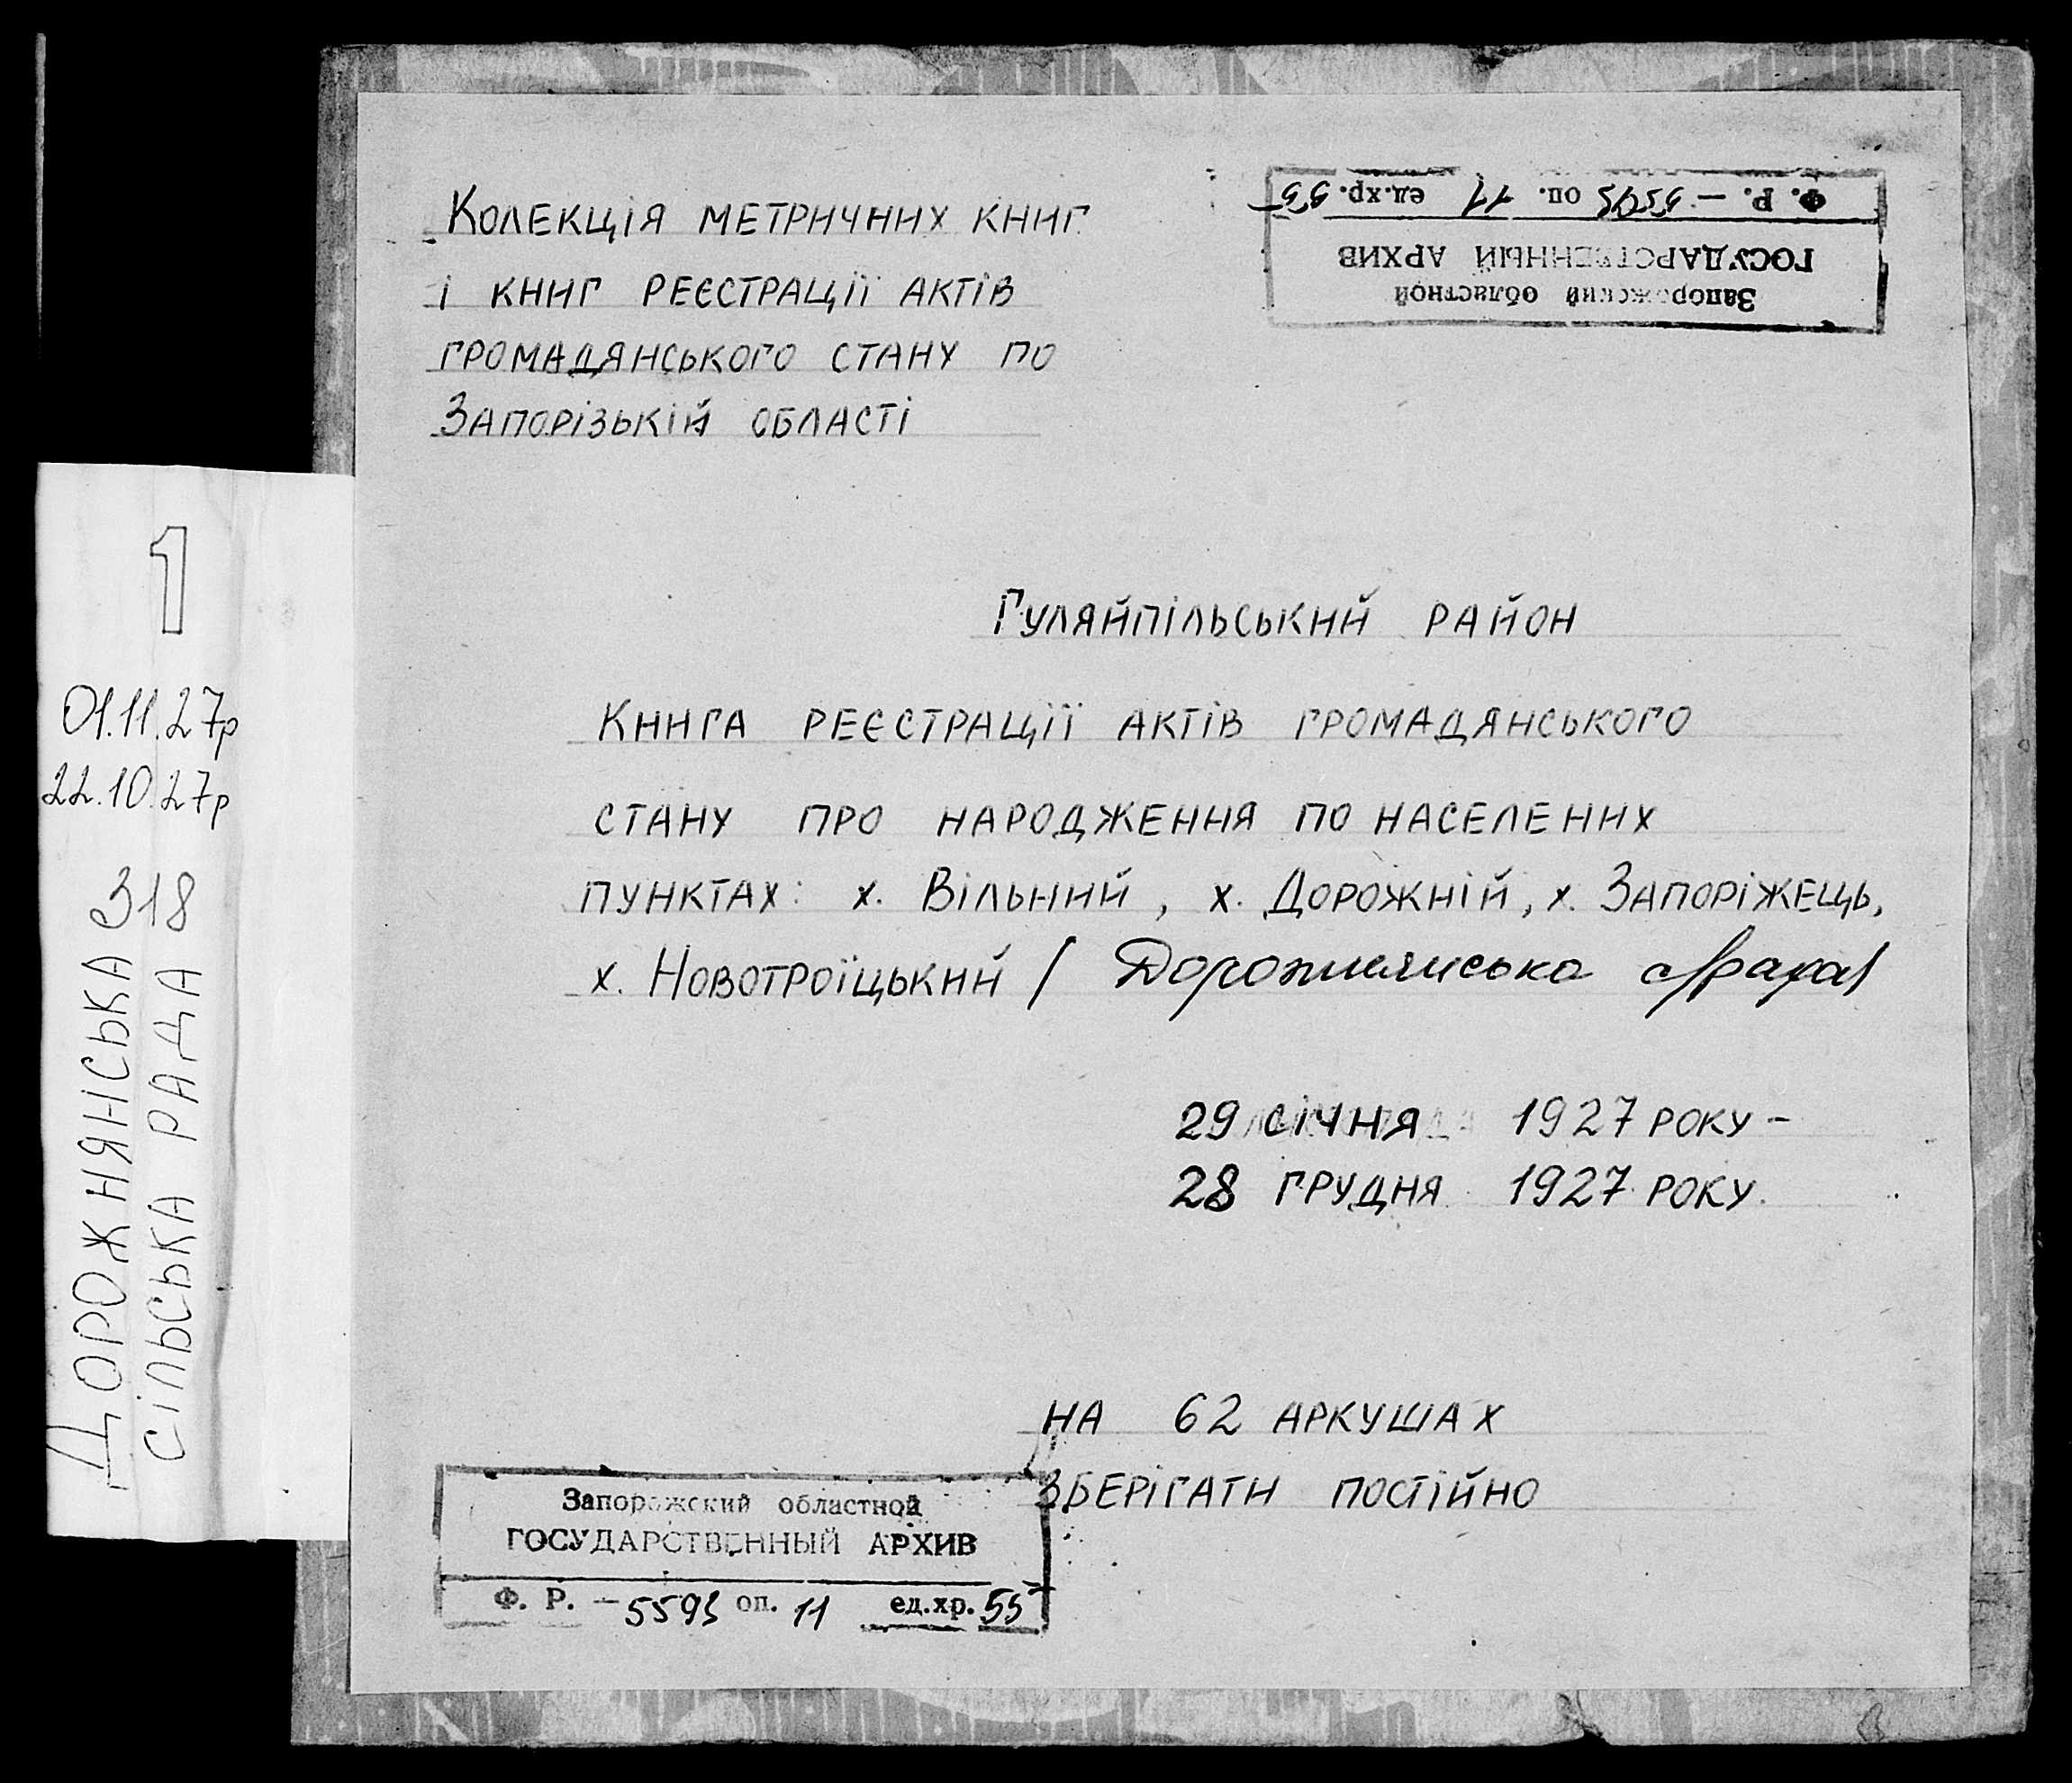 Колекція метричних книг
і книг реєстрації актів
громадянського стану по
Запорізькій області
Ф. Р. – 5593 оп. 11 ед.хр. 55
ГОСУДАРСТВЕННЫЙ АРХИВ
Запорожский областной
Гуляйпільський район
Книга реєстрації актів громадянського
стану про народження по населених
пунктах: х. Вільний, х. Дорожній, х. Запоріжець,
х. Новотроїцький / Дорожнянська с/рада/
29 січня 1927 року –
28 грудня 1927 року.
на 62 аркушах
зберігати постійно
Запорожский областной
ГОСУДАРСТВЕННЫЙ АРХИВ
Ф. Р. – 5593 оп. 11 ед.хр. 55
1
01.11.27р
22.10.27р
318
Дорожнянська
сільська рада